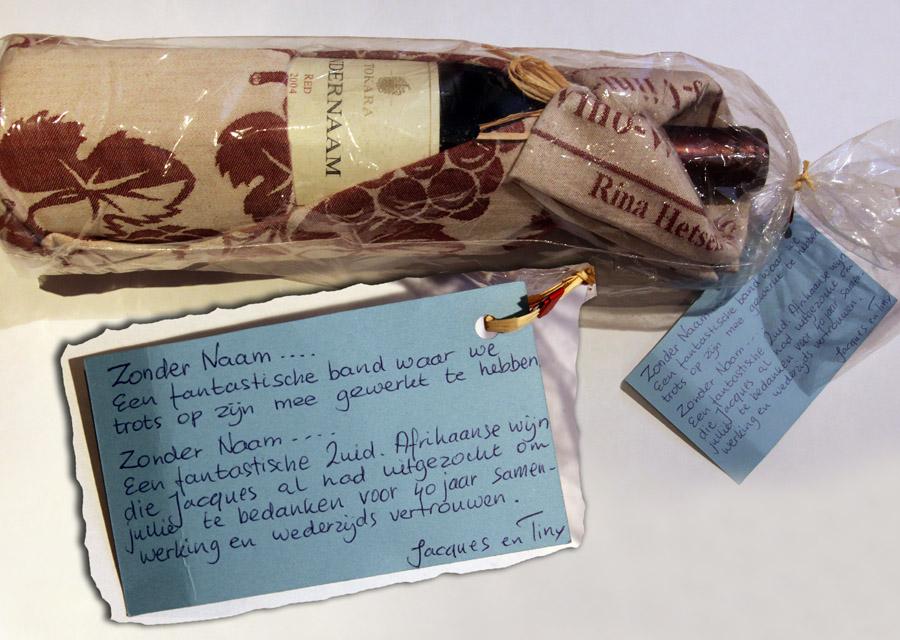 TOKARA
RED
2004
Rina
Zonder Naam ....
Een fantastische band waar we
trots op zijn mee gewerkt te hebben
Zonder Naam ....
Een fantastische Zuid. Afrikaanse wijn
die Jacques al had uitgezocht om
jullie te bedanken voor 40 jaar samen-
werking en wederzijds vertrouwen.
Jacques en Tiny
Zonder Naam
Een fantastische band waar we
trots op zijn mee gewerkt te hebben
Zonder Naam...
Een fantastische Zuid. Afrikaanse wijn
die Jacques al had uitgezocht om
jullie te bedanken voor 40 jaar samen-
werking en wederzijds vertrouwen.
Jacques en Tiny